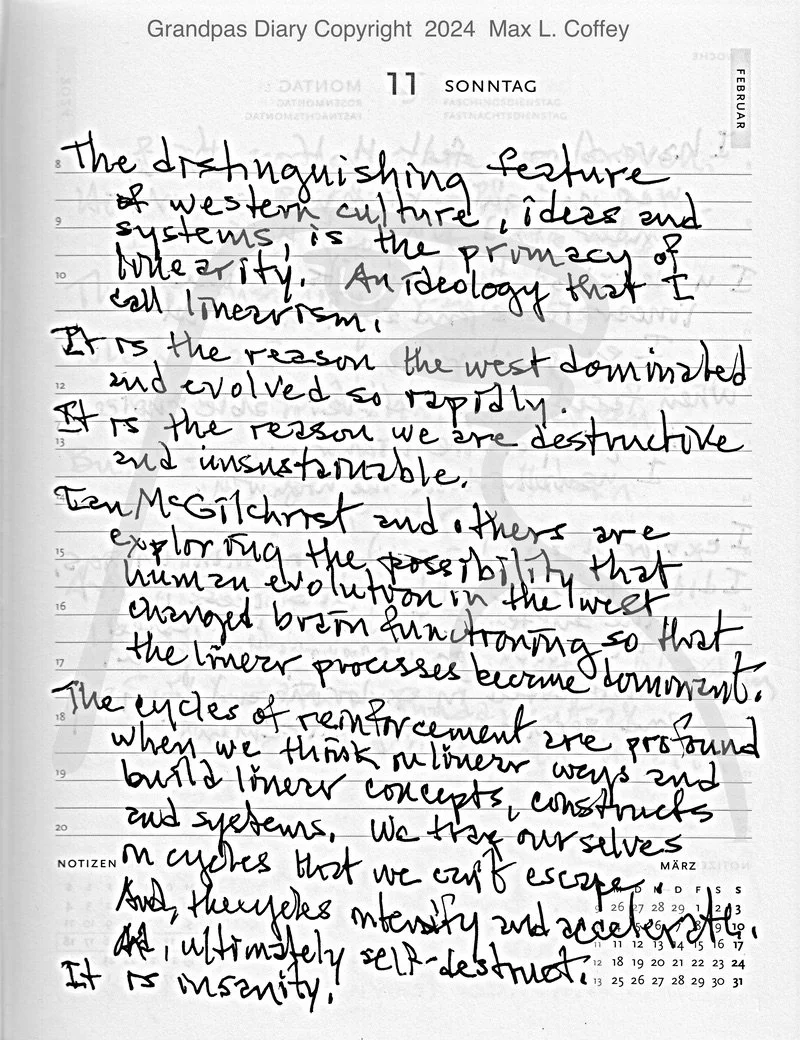 Grandpas Diary Copyright 2024 Max L. Coffey
11 SONNTAG
FEBRUAR
The distinguishing feature
of western culture, ideas and
systems, is the primacy of
linearity. An ideology that I
call linearism.
It is the reason the west dominated
and evolved so rapidly.
It is the reason we are destructive
and unsustainable.
Ian McGilchrist and others are
exploring the possibility that
human evolution in the west
changed brain functioning so that
the linear processes became dominant.
The cycles of reinforcement are profound
when we think in linear ways and
build linear concepts, constructs
and systems. We trap ourselves
in cycles that we can't escape.
And, the cycles intensify and accelerate.
And, ultimately self-destruct.
It is insanity.
8
9
10
12
13
15
16
17
18
19
20
NOTIZEN
MÄRZ
D F S S
26 27 28 29 1 2 3
10
11 11 12 13 14 15 16 17
12 18 19 20 21 22 23 24
13 25 26 27 28 29 30 31